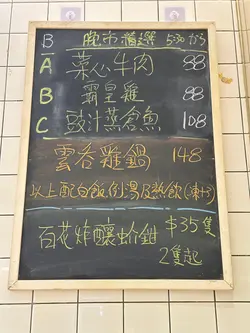 B 晚市精選 5:30後
A 菜心牛肉 88
B 霸皇雞 88
C 豉汁蒸倉魚 108
雲吞雞鍋 148
以上配白飯例湯及熱飲(凍+3)
百花炸釀蚧鉗 $35隻
2隻起